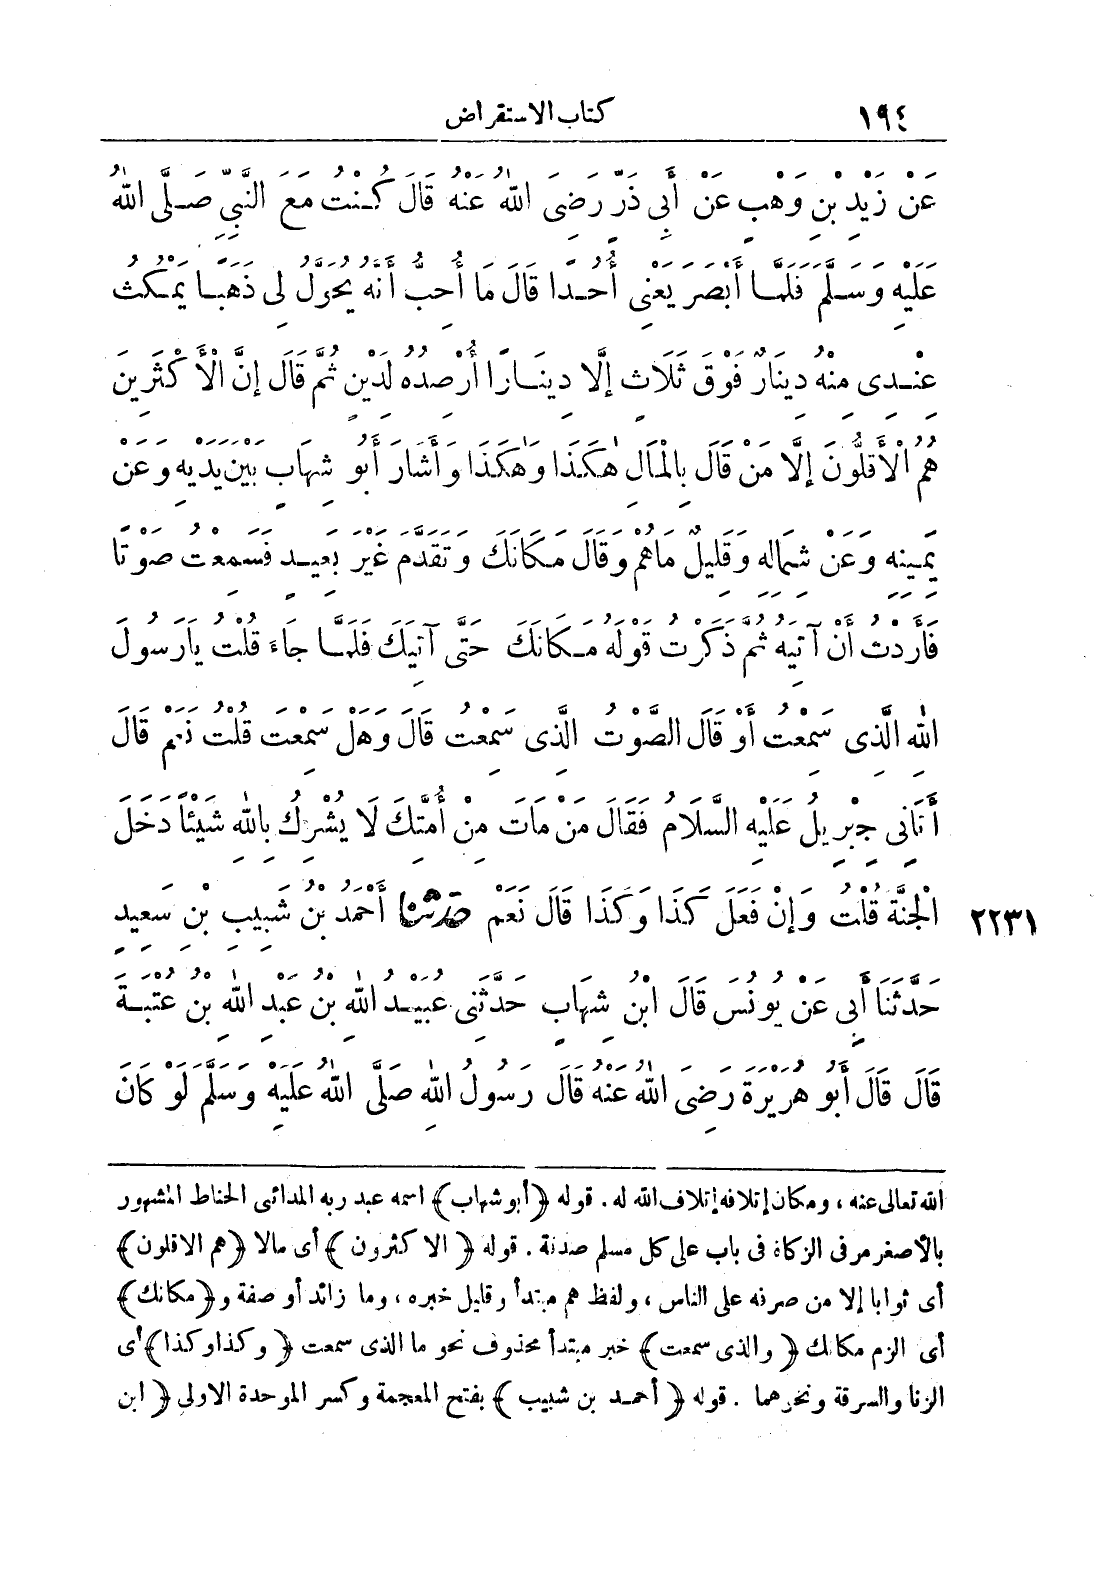 ١٩٤ كتاب الاستقراض
عَنْ زَيْدِ بْنِ وَهْبٍ عَنْ أَبِى ذَرٍّ رَضِىَ اللهُ عَنْهُ قَالَ كُنْتُ مَعَ النَّبِىِّ صَلَّى اللهُ
عَلَيْهِ وَسَلَّمَ فَلَمَّا أَبْصَرَ يَعْنِى أُحُدًا قَالَ مَا أُحِبُّ أَنَّهُ يُحَوَّلُ لِى ذَهَبًا يَمْكُثُ
عِنْدِى مِنْهُ دِينَارٌ فَوْقَ ثَلَاثٍ إِلَّا دِينَارًا أُرْصِدُهُ لِدَيْنٍ ثُمَّ قَالَ إِنَّ الْأَكْثَرِينَ
هُمُ الْأَقَلُّونَ إِلَّا مَنْ قَالَ بِالْمَالِ هٰكَذَا وَهٰكَذَا وَأَشَارَ أَبُو شِهَابٍ بَيْنَ يَدَيْهِ وَعَنْ
يَمِينِهِ وَعَنْ شِمَالِهِ وَقَلِيلٌ مَاهُمْ وَقَالَ مَكَانَكَ وَتَقَدَّمَ غَيْرَ بَعِيدٍ فَسَمِعْتُ صَوْتًا
فَأَرَدْتُ أَنْ آتِيَهُ ثُمَّ ذَكَرْتُ قَوْلَهُ مَكَانَكَ حَتَّى آتِيَكَ فَلَمَّا جَاءَ قُلْتُ يَارَسُولَ
اللهِ الَّذِى سَمِعْتُ أَوْ قَالَ الصَّوْتُ الَّذِى سَمِعْتُ قَالَ وَهَلْ سَمِعْتَ قُلْتُ نَعَمْ قَالَ
أَتَانِى جِبْرِيلُ عَلَيْهِ السَّلَامُ فَقَالَ مَنْ مَاتَ مِنْ أُمَّتِكَ لَا يُشْرِكُ بِاللهِ شَيْئًا دَخَلَ
الْجَنَّةَ قُلْتُ وَإِنْ فَعَلَ كَذَا وَكَذَا قَالَ نَعَمْ حَدَّثَنَا أَحْمَدُ بْنُ شَبِيبِ بْنِ سَعِيدٍ ٢٢٣١
حَدَّثَنَا أَبِى عَنْ يُونُسَ قَالَ ابْنُ شِهَابٍ حَدَّثَنِى عُبَيْدُ اللهِ بْنُ عَبْدِ اللهِ بْنِ عُتْبَةَ
قَالَ قَالَ أَبُو هُرَيْرَةَ رَضِىَ اللهُ عَنْهُ قَالَ رَسُولُ اللهِ صَلَّى اللهُ عَلَيْهِ وَسَلَّمَ لَوْ كَانَ
الله تعالى عنه ، ومكان إتلافه إتلاف الله له . قوله ﴿أبو شهاب﴾ اسمه عبد ربه المدائنى الحناط المشهور
بالأصغر مر فى الزكاة فى باب على كل مسلم صدقة . قوله ﴿الاكثرون﴾ أى مالا ﴿هم الاقلون﴾
أى ثوابا إلا من صرفه على الناس ، ولفظ هم مبتدأ وقليل خبره ، وما زائد أو صفة و﴿مكانك﴾
أى الزم مكانك ﴿والذى سمعت﴾ خبر مبتدأ محذوف نحو ما الذى سمعت ﴿وكذا وكذا﴾ أى
الزنا والسرقة ونحوهما . قوله ﴿أحمد بن شبيب﴾ بفتح المعجمة وكسر الموحدة الاولى ﴿ابن